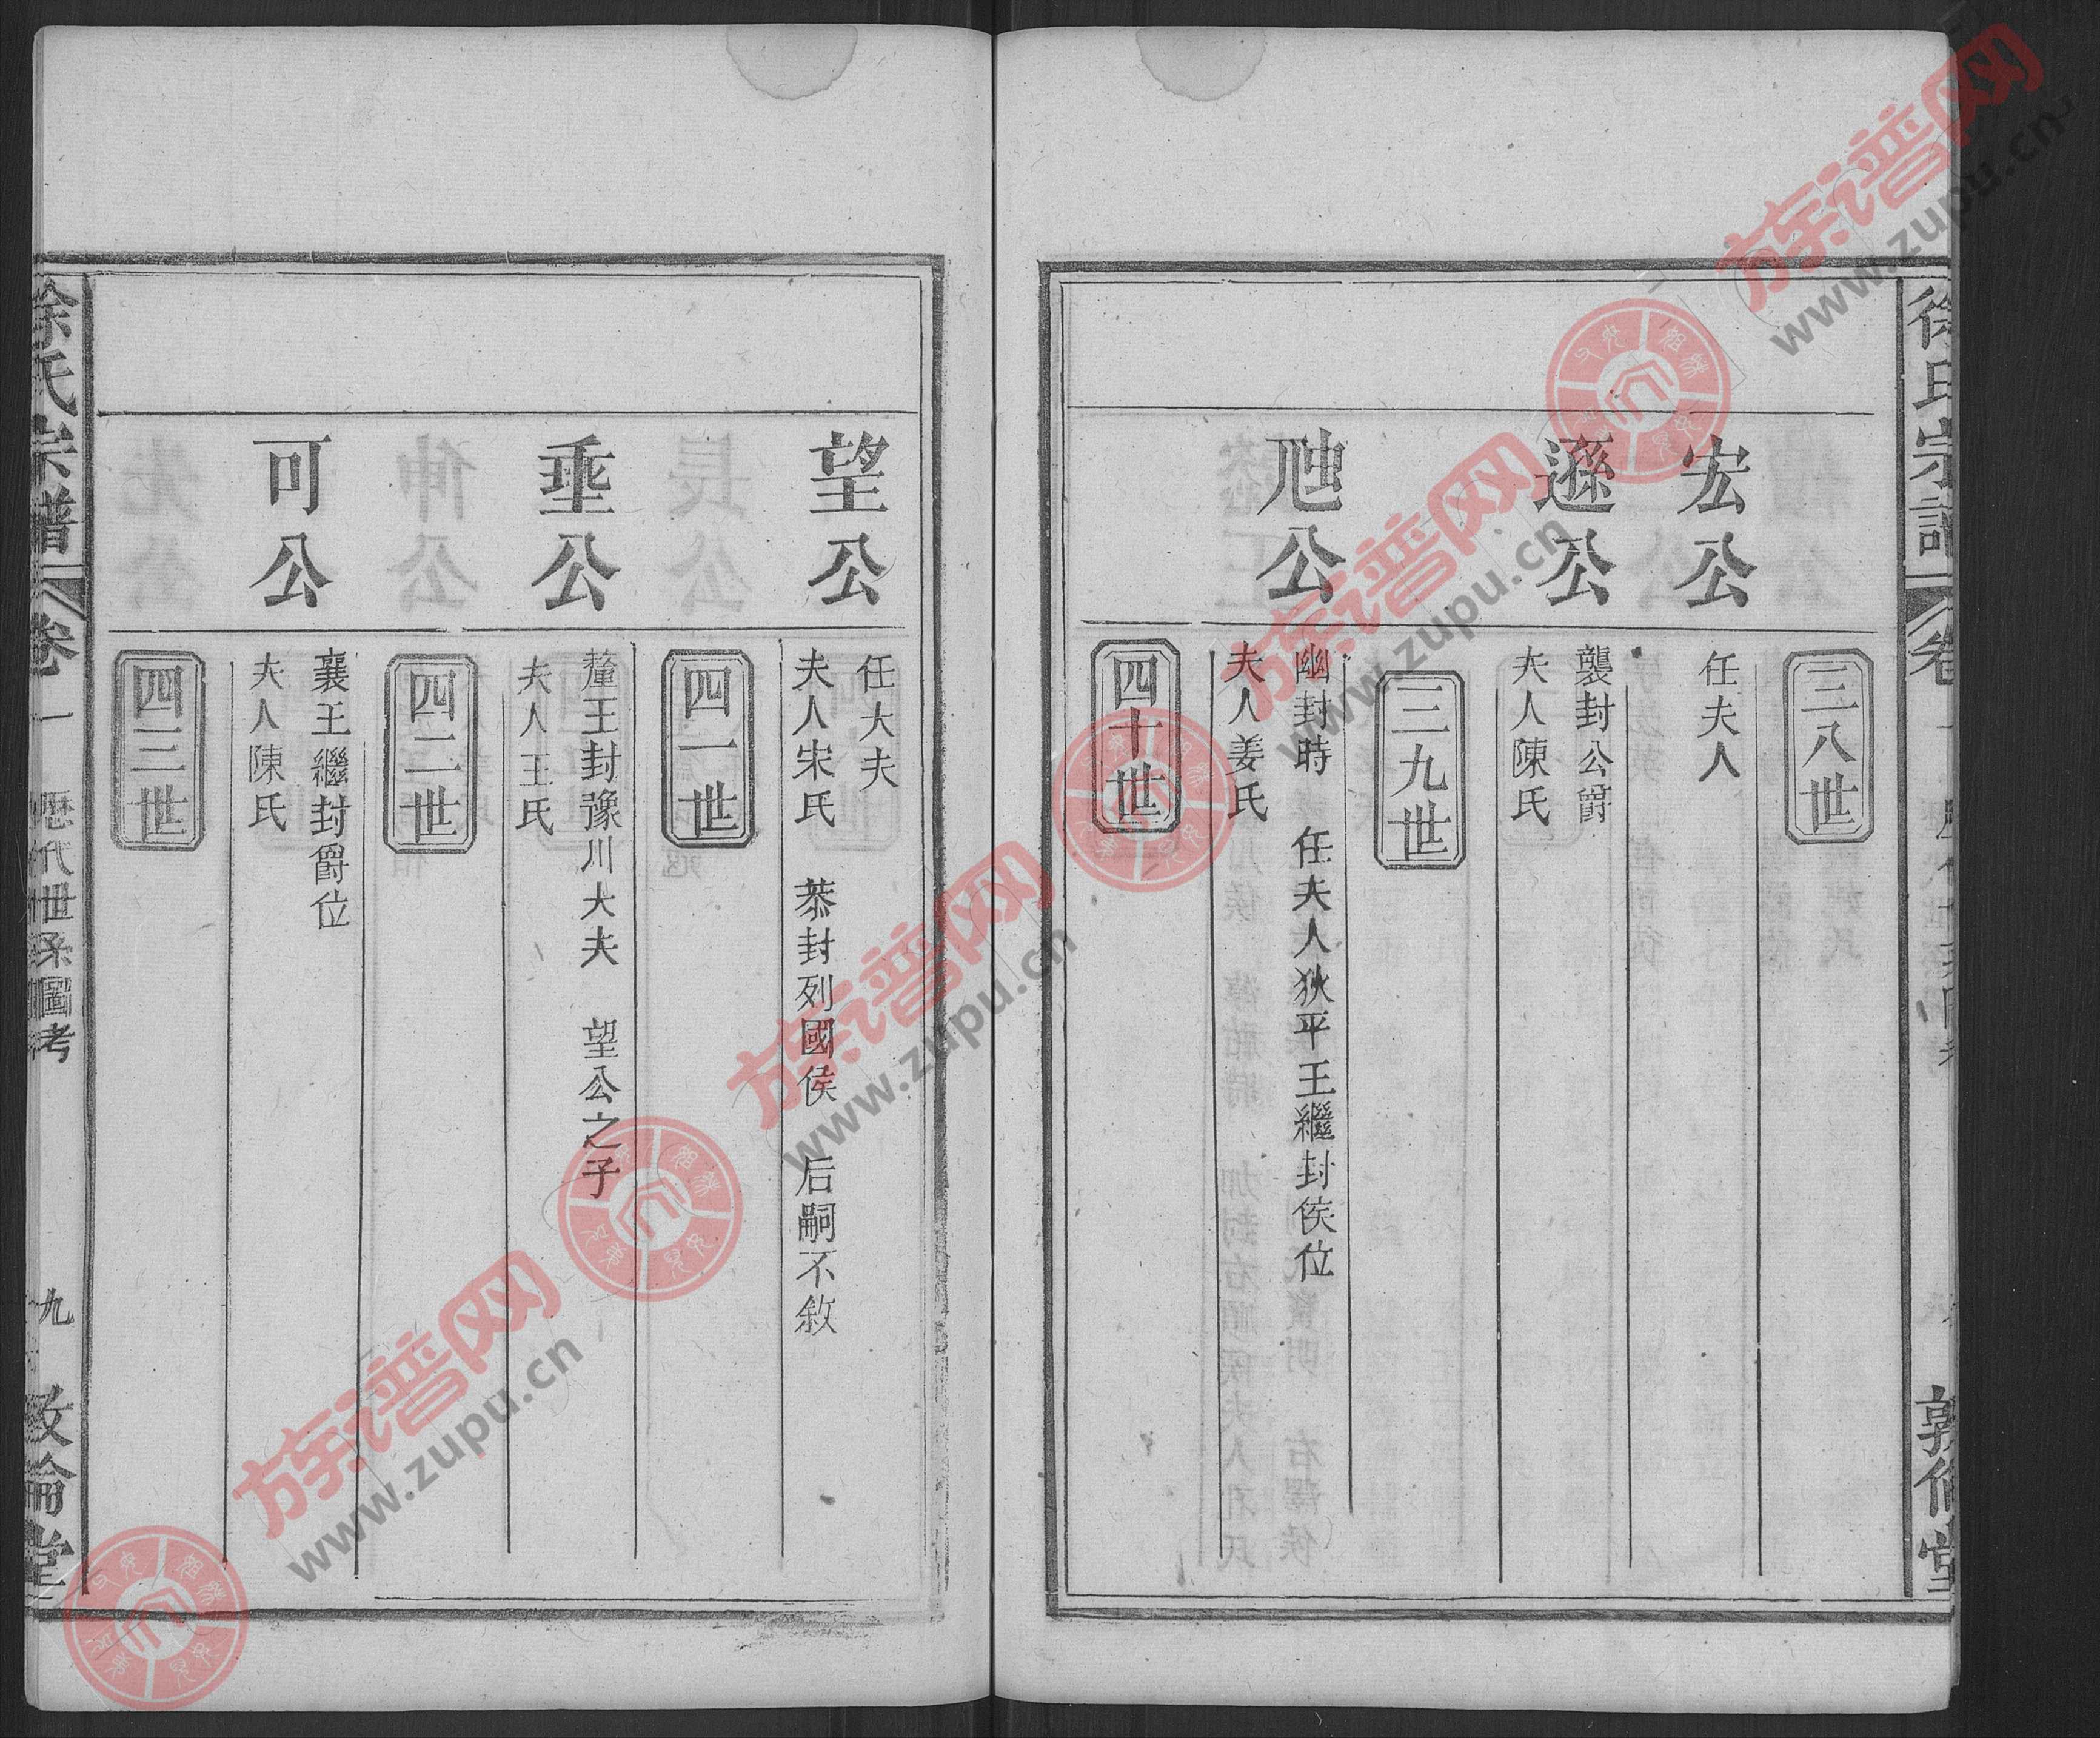 徐氏宗譜
卷一
敦倫堂
三八世
宏公
任夫人
遜公
襲封公爵
夫人陳氏
三九世
虺公
幽封時 任夫人狄平王繼封侯位
夫人姜氏
四十世
望公
任大夫
夫人宋氏 恭封列國侯 后嗣不敘
四一世
垂公
釐王封豫川大夫 望公之子
夫人王氏
四二世
可公
襄王繼封爵位
夫人陳氏
四三世
徐氏宗譜
卷一
歷代世系圖考
九
敦倫堂
族谱网
www.zupu.cn
族谱网
www.zupu.cn
族谱网
www.zupu.cn
族谱网
www.zupu.cn